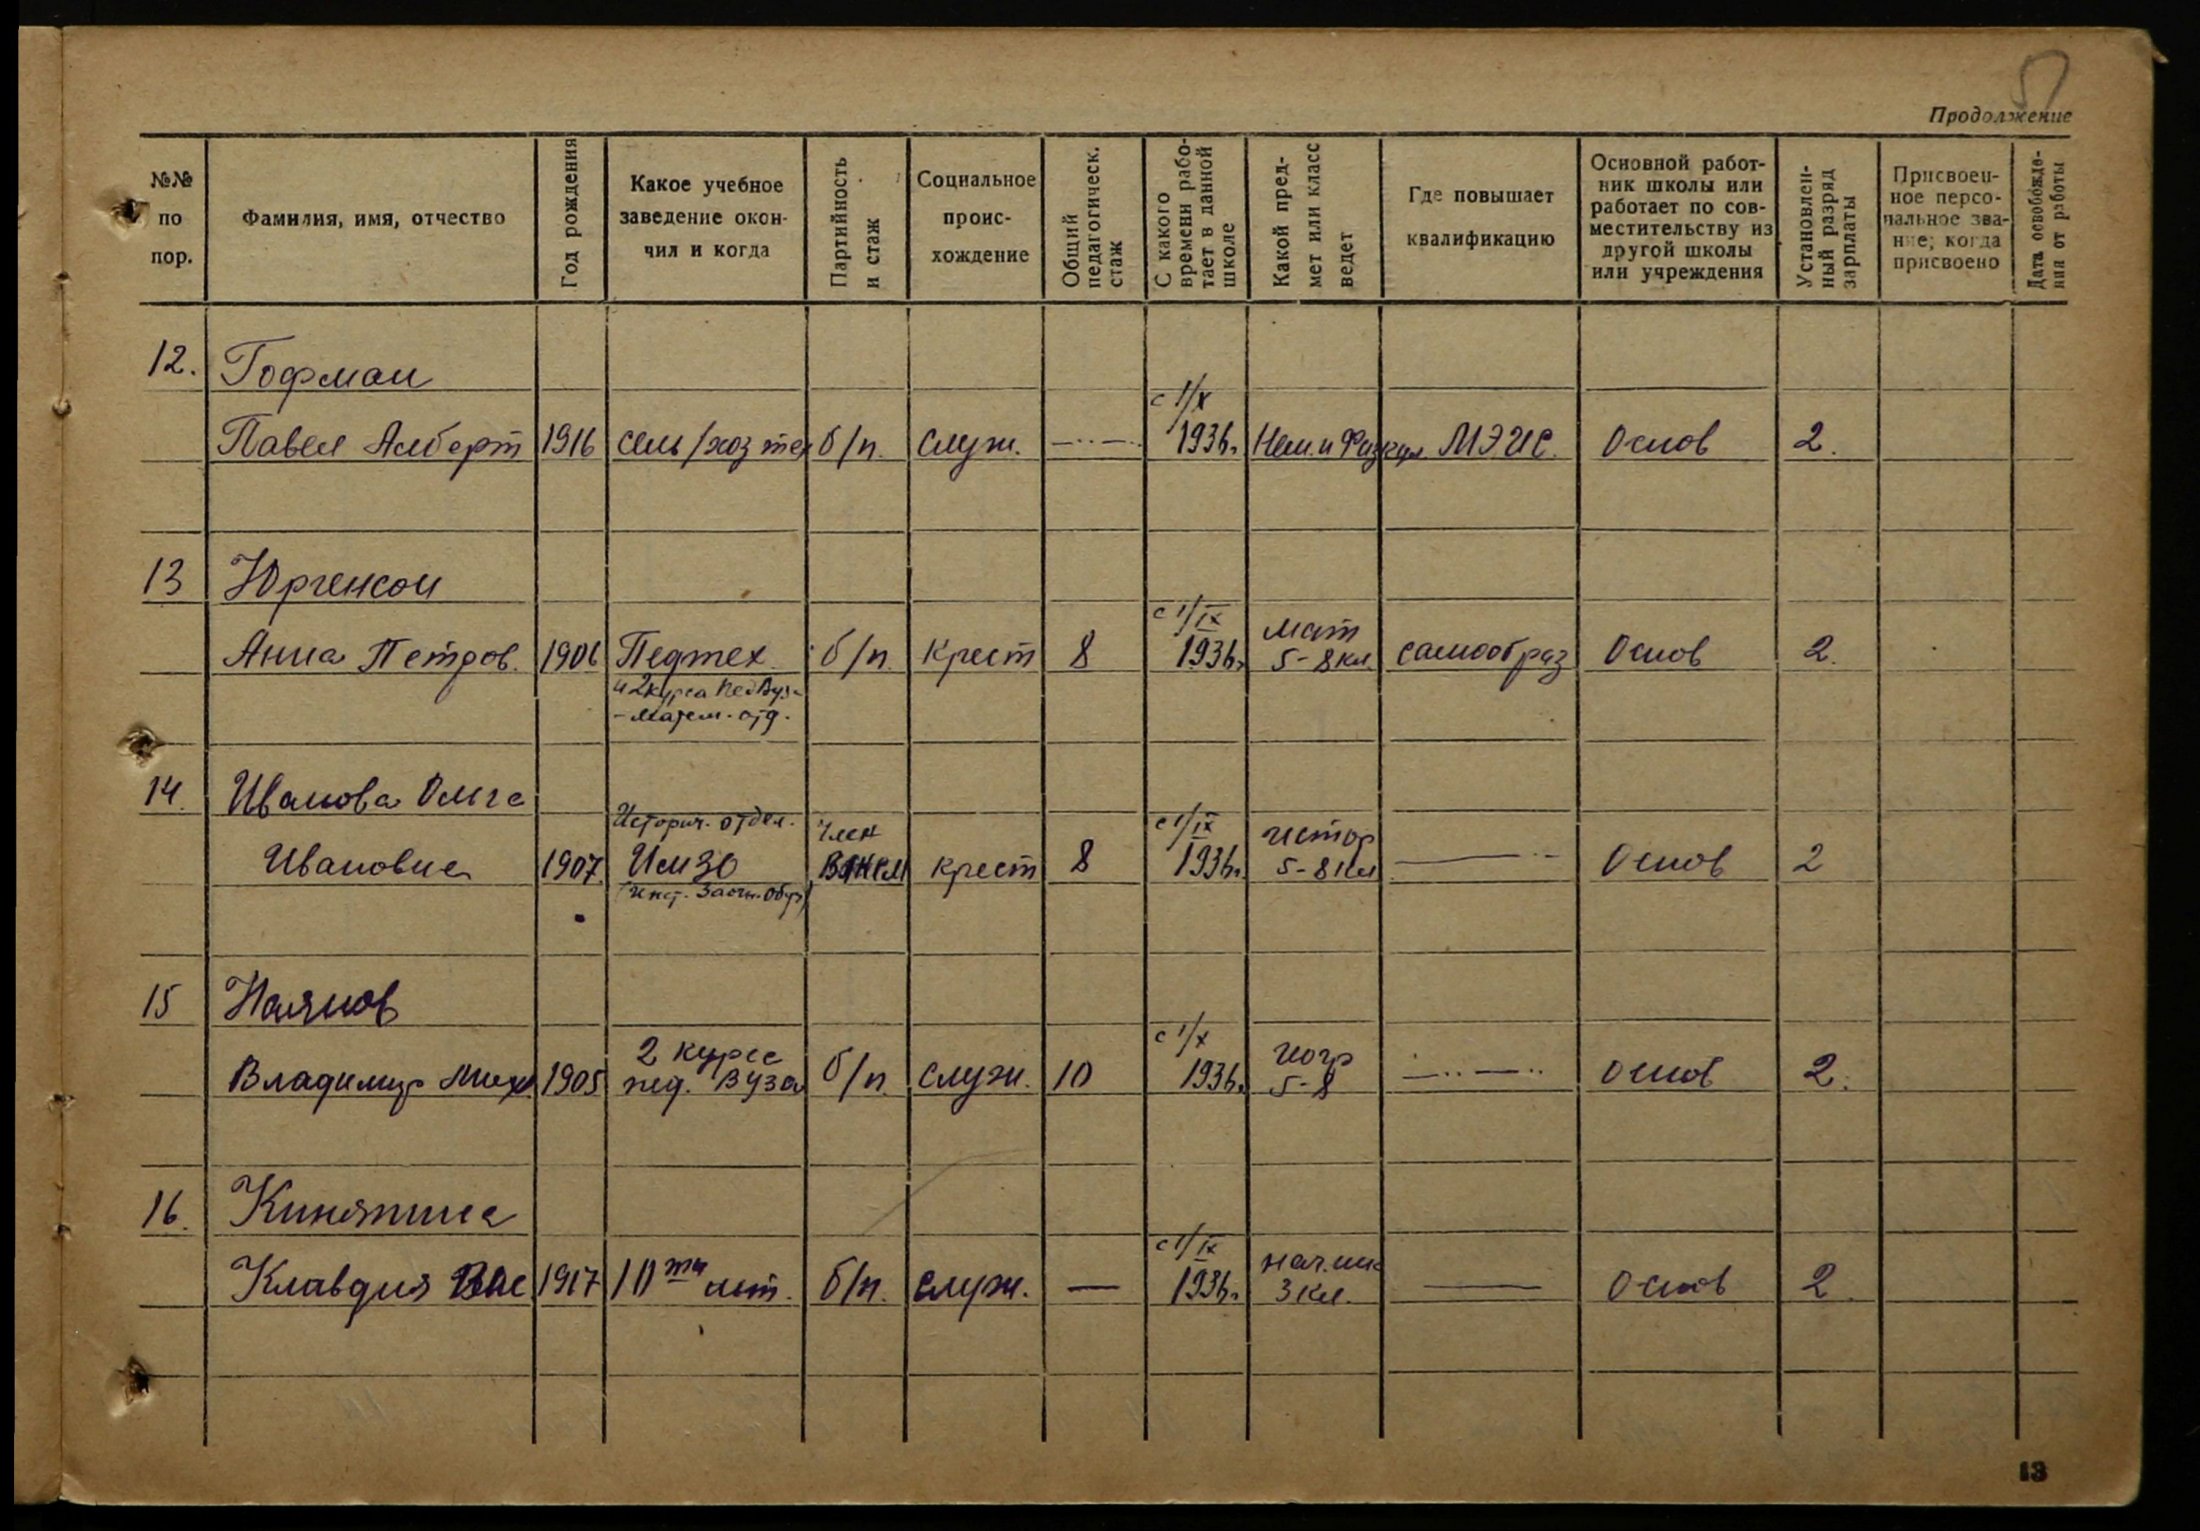 Продолжение
№№ по пор.
Фамилия, имя, отчество
Год рождения
Какое учебное заведение окончил и когда
Партийность и стаж
Социальное происхождение
Общий педагогическ. стаж
С какого времени работает в данной школе
Какой предмет или класс ведет
Где повышает квалификацию
Основной работник школы или работает по совместительству из другой школы или учреждения
Установленный разряд зарплаты
Присвоенное персональное звание; когда присвоено
Дата освобождения от работы
12. Гофман
с 1/X
Павел Альберт 1916 сель/хоз тех б/п. служ. —··— 1936г. Нем. и Физкул МЭИС. Основ 2.
13 Юргенсон
с 1/IX мат
Анна Петров. 1906 Педтех. б/п. крест 8 1936г. 5-8 кл. самообраз Основ 2.
и 2 курса ПедВуза
- Матем. отд.
14. Иванова Ольга
Историч. отдел. Член с 1/IX истор
Ивановна 1907. ИмЗО ВЛКСМ крест 8 1936г. 5-8 кл — Основ 2
(Инст. Заочн. Обуч)
15 Наянов
2 курса с 1/X
Владимир Мих. 1905 пед. ВУЗа б/п. служ. 10 1936г. 5-8 —··—·· Основ 2.
16. Киняпина
с 1/IX нач. шк.
Клавдия Вас 1917 10ти лет. б/п. служ. — 1936г. 3 кл. — Основ 2.
13